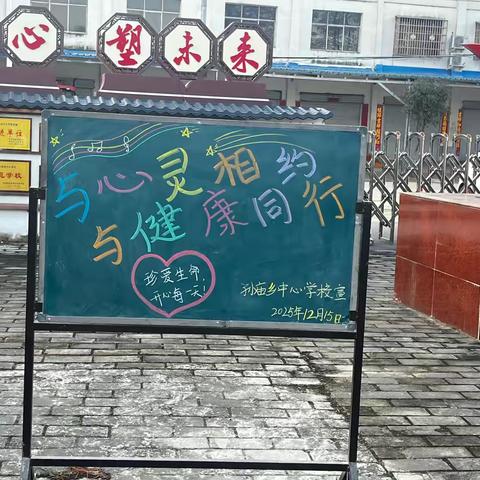 心塑未来
进单位
范学校
与心灵相约
与健康同行
珍爱生命,
开心每一天!
孙庙乡中心学校宣
2025年12月15日